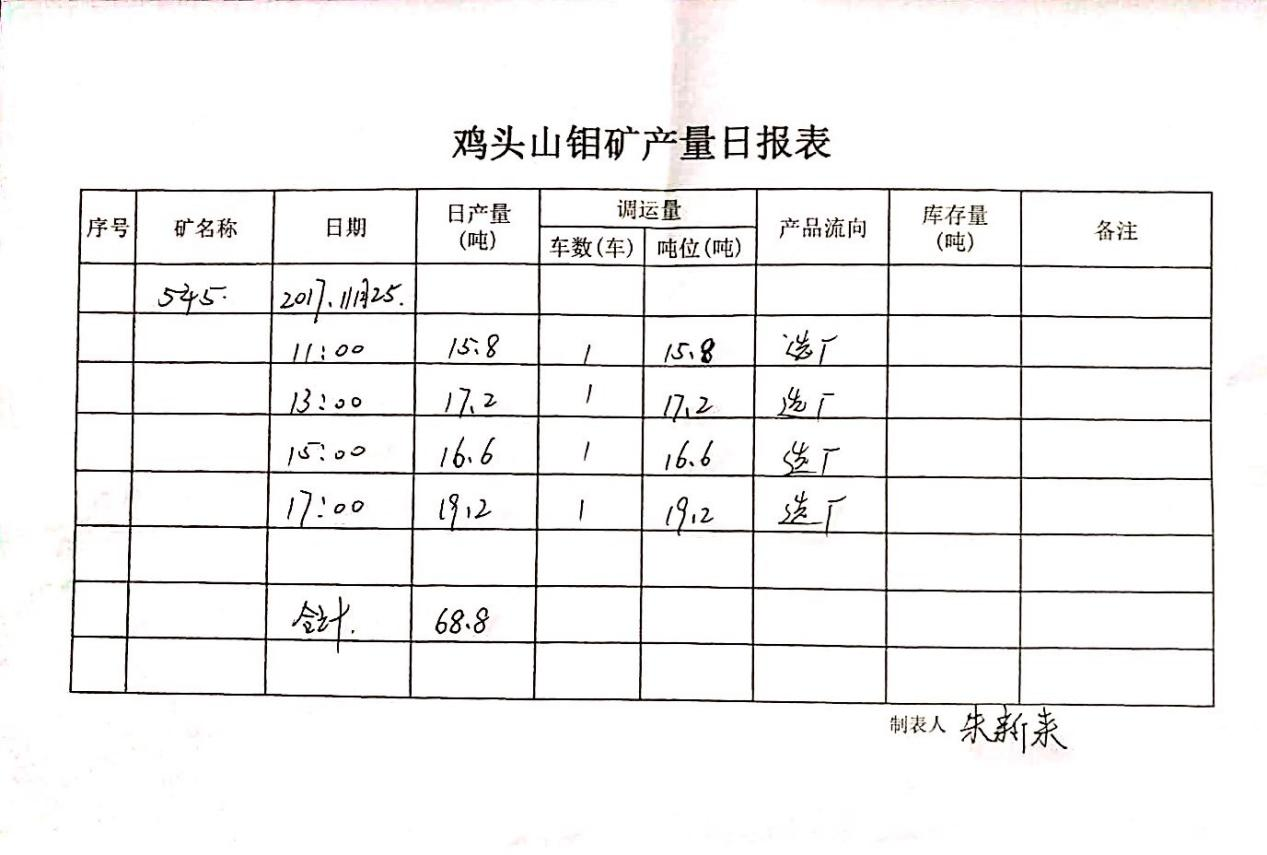 鸡头山钼矿产量日报表
序号 矿名称 日期 日产量(吨) 调运量 产品流向 库存量(吨) 备注
车数(车) 吨位(吨)
545. 2017.11月25.
11:00 15.8 1 15.8 选厂
13:00 17.2 1 17.2 选厂
15:00 16.6 1 16.6 选厂
17:00 19.2 1 19.2 选厂
合计. 68.8
制表人 朱新来